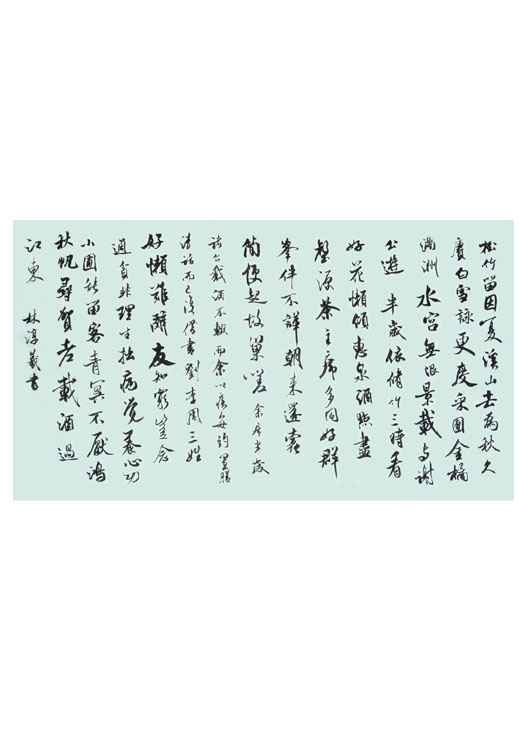 松竹留因夏溪山去為秋久
賡白雪詠更度采團金橘
滿洲水宮無限景載与謝
公遊半歲依脩竹三時看
好花懶傾惠泉酒點盡
壑源茶主席多同好群
峯伴不譁朝来還蠹
簡便起故巢嗟余居半歲
諸公載酒不輟而余以疾每約置膳
清話而已復借書劉李周三姓
好懶難辭友知窮豈念
通貧非理生拙病覺養心功
小圃能留客青冥不厭鴻
秋帆尋賀老載酒過
江東 林淳書